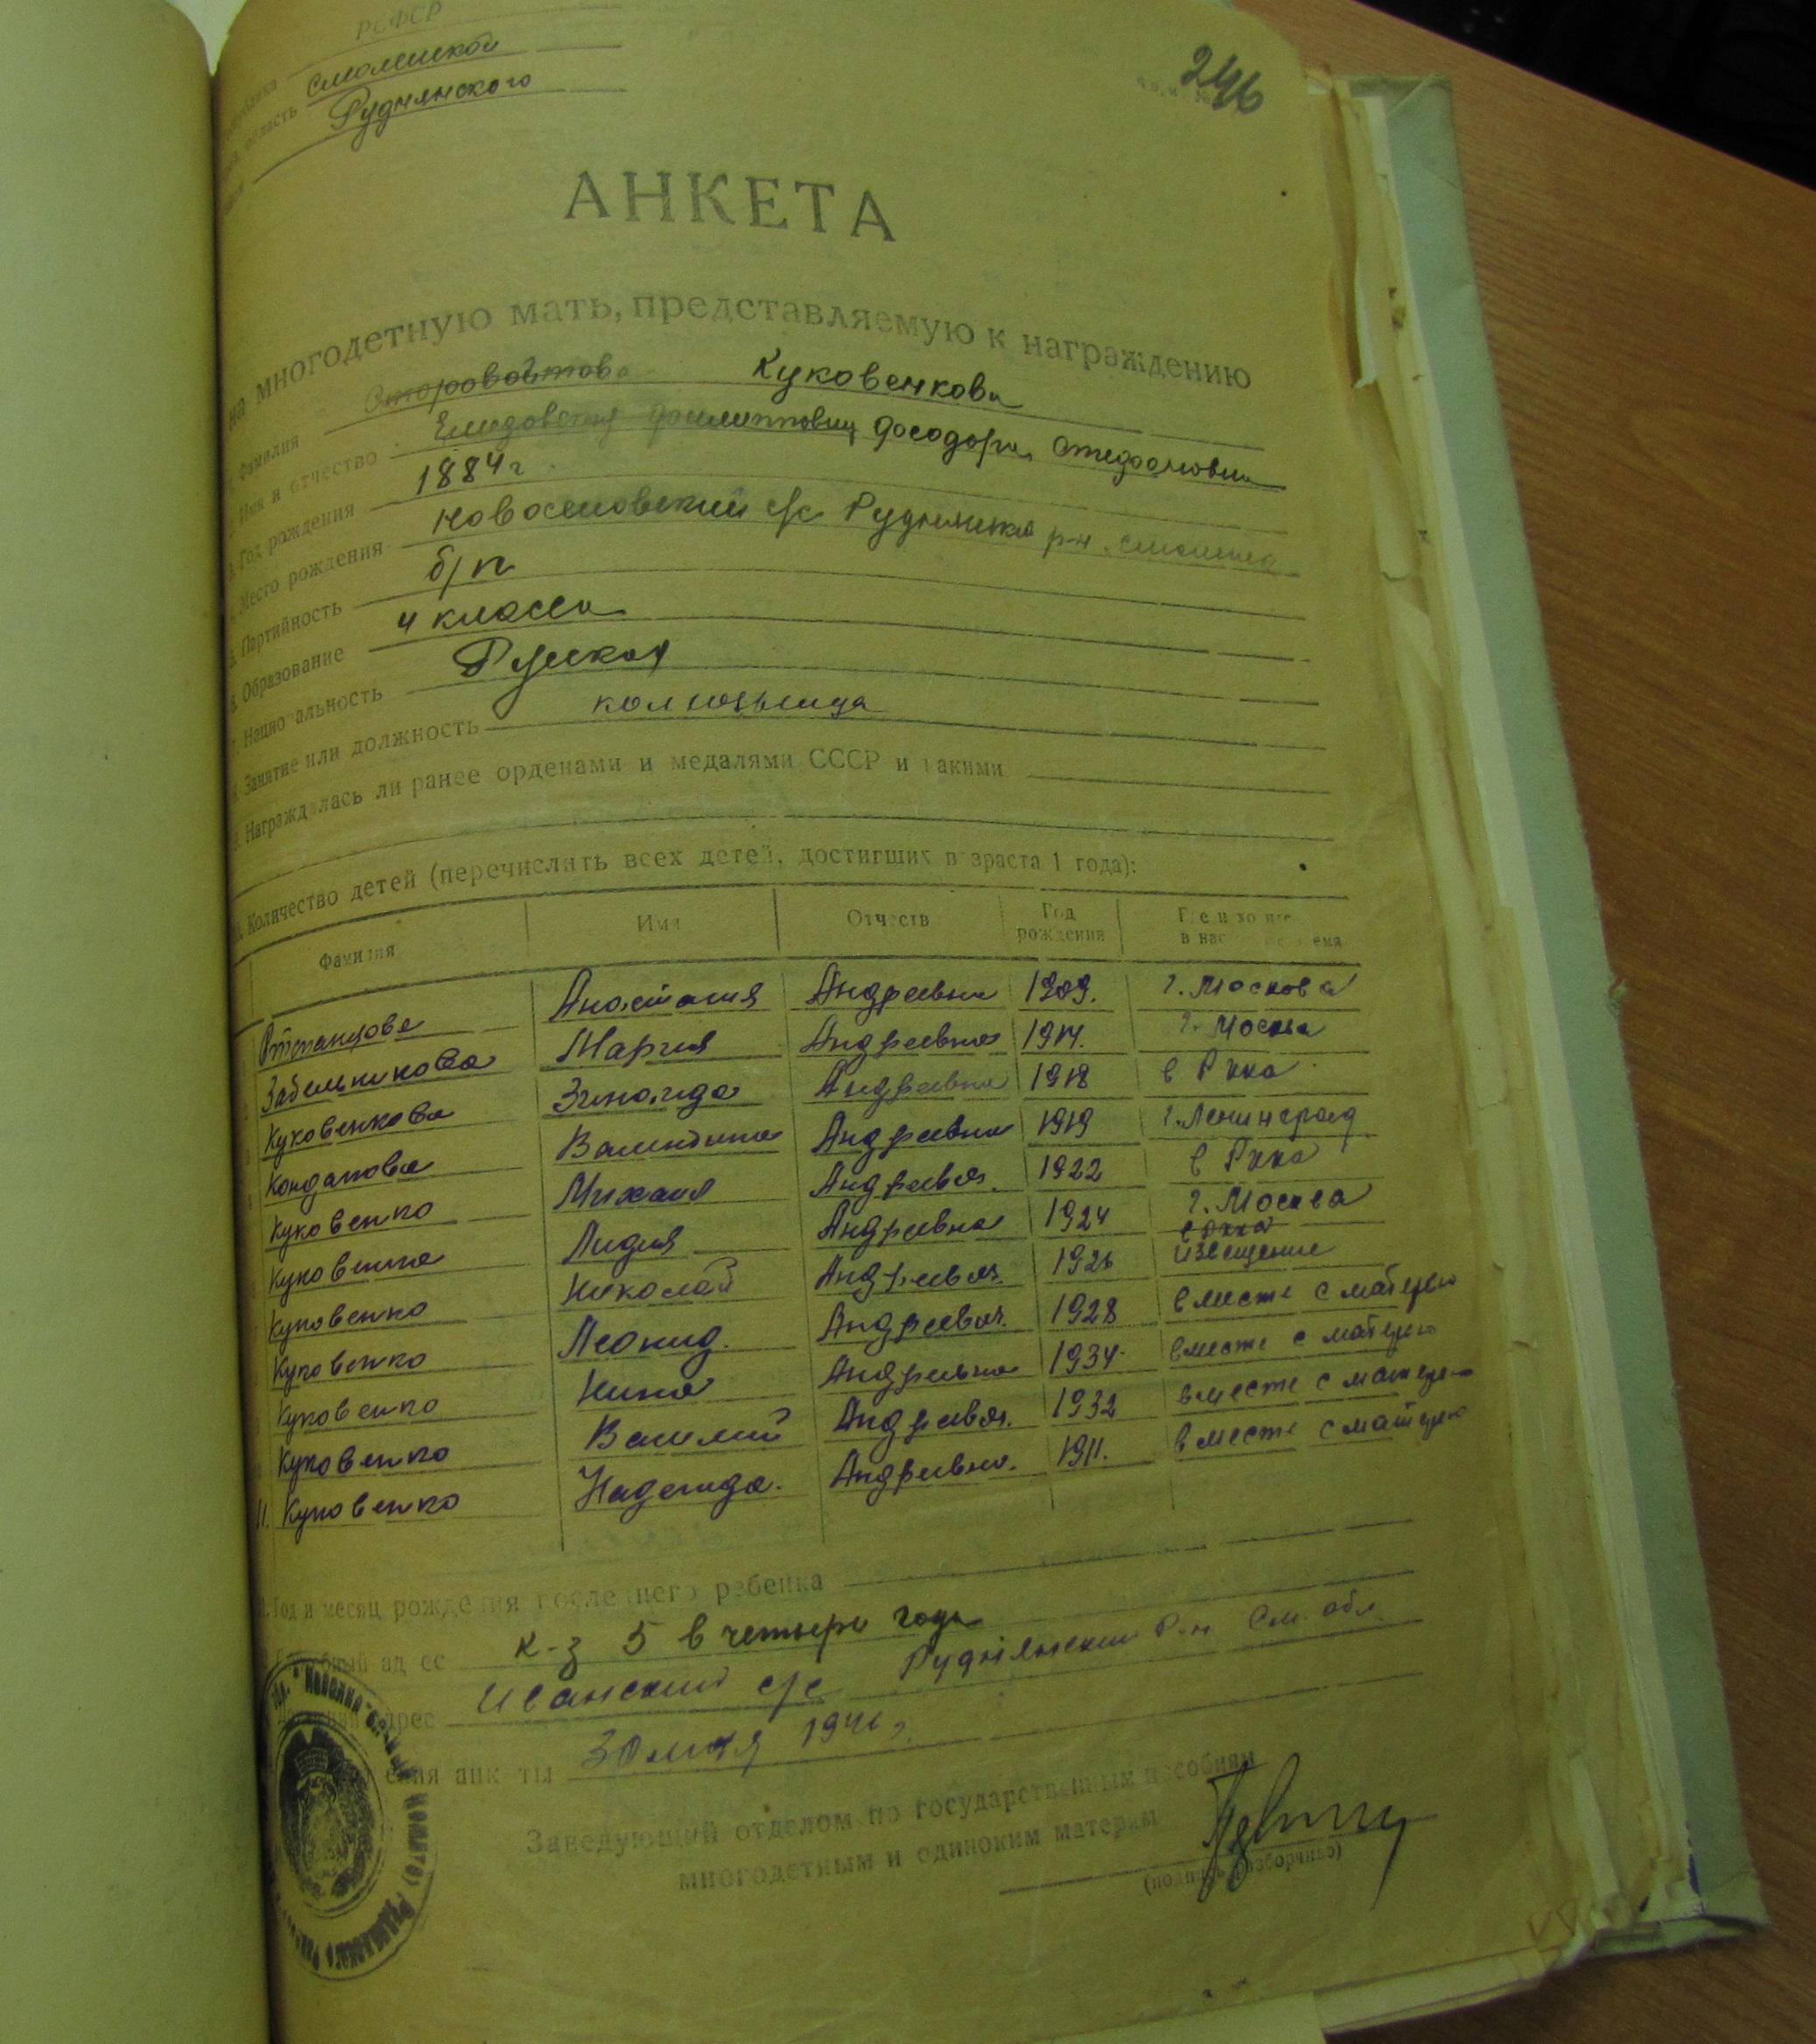 РСФСР
область Смоленской
Руднянского
246
АНКЕТА
на многодетную мать, представляемую к награждению
Фамилия Староовойтова Куковенкова
Имя и отчество Федора Стефановна
3. Год рождения 1884 г.
4. Место рождения Новоселовский с/с Руднянский р-н
5. Партийность б/п
6. Образование 4 класса
7. Национальность Русская
8. Занятие или должность колхозница
9. Награждалась ли ранее орденами и медалями СССР и какими
10. Количество детей (перечислить всех детей, достигших возраста 1 года):
Фамилия Имя Отчество Год рождения
Анастасия Андреевна 1909. г. Москова
Забельникова Мария Андреевна 1914. г. Москва
Куковенкова Зинаида Андреевна 1918 в Ркка
Валентина Андреевна 1919 г. Ленинград
Куковенко Михаил Андреевич. 1922 в Ркка
Куковенко Лидия Андреевна 1924 г. Москва
Куковенко Николай Андреевич. 1926 извещение
Куковенко Леонид. Андреевич. 1928 вместе с матерью
Куковенко Нина Андреевна 1934 вместе с матерью
Куковенко Василий Андреевич. 1932 вместе с матерью
11. Куковенко Надежда. Андреевна. 1911. вместе с матерью
Год и месяц рождения последнего ребенка
адрес к-з 5 в четыри года
адрес Иванский с/с Руднянский р-н См. обл.
анкеты 30 мая 194
Заведующий отделом по государственным пособиям
многодетным и одиноким матерям
(подпись разборчиво)